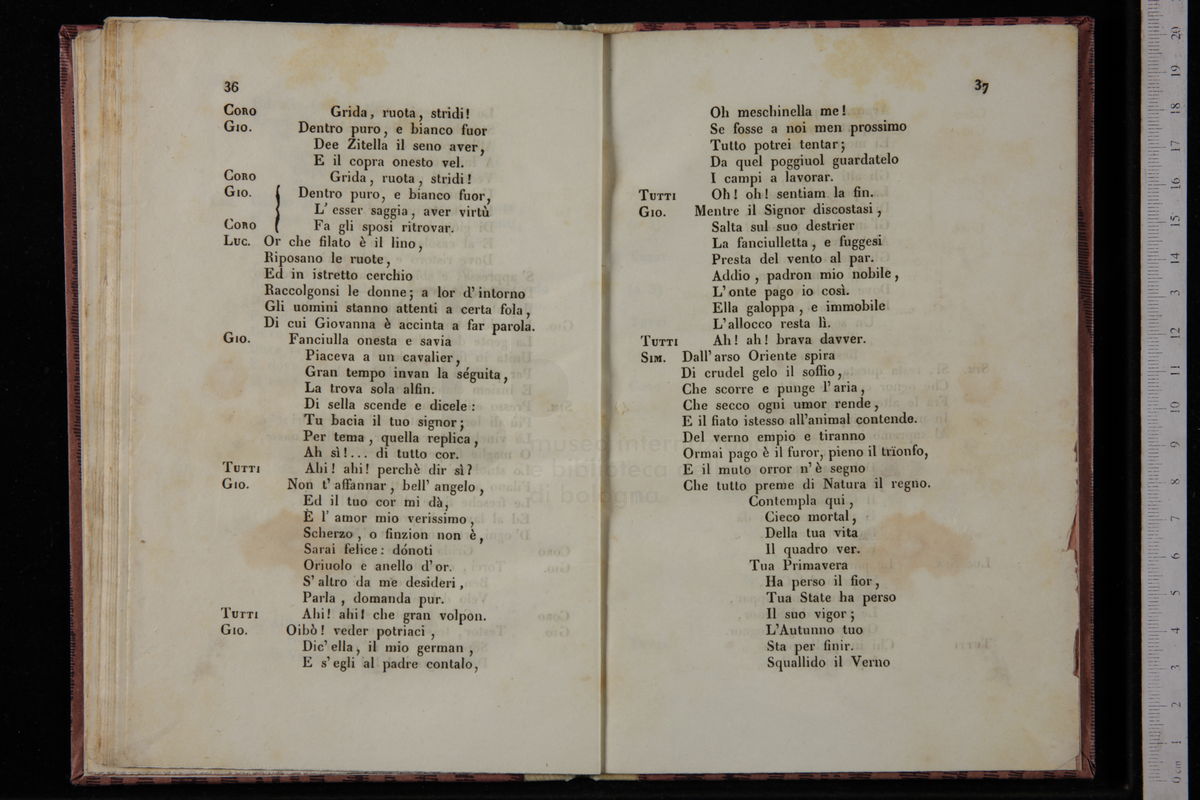 36
CORO Grida, ruota, stridi!
GIO. Dentro puro, e bianco fuor
Dee Zitella il seno aver,
E il copra onesto vel.
CORO Grida, ruota, stridi!
GIO. Dentro puro, e bianco fuor,
L' esser saggia, aver virtù
CORO Fa gli sposi ritrovar.
LUC. Or che filato è il lino,
Riposano le ruote,
Ed in istretto cerchio
Raccolgonsi le donne; a lor d' intorno
Gli uomini stanno attenti a certa fola,
Di cui Giovanna è accinta a far parola.
GIO. Fanciulla onesta e savia
Piaceva a un cavalier,
Gran tempo invan la séguita,
La trova sola alfin.
Di sella scende e dicele:
Tu bacia il tuo signor;
Per tema, quella replica,
Ah sì!... di tutto cor.
TUTTI Ahi! ahi! perchè dir sì?
GIO. Non t' affannar, bell' angelo,
Ed il tuo cor mi dà,
È l' amor mio verissimo,
Scherzo, o finzion non è,
Sarai felice: dónoti
Oriuolo e anello d' or.
S' altro da me desideri,
Parla, domanda pur.
TUTTI Ahi! ahi! che gran volpon.
GIO. Oibò! veder potriaci,
Dic' ella, il mio german,
E s' egli al padre contalo,
37
Oh meschinella me!
Se fosse a noi men prossimo
Tutto potrei tentar;
Da quel poggiuol guardatelo
I campi a lavorar.
TUTTI Oh! oh! sentiam la fin.
GIO. Mentre il Signor discostasi,
Salta sul suo destrier
La fanciulletta, e fuggesi
Presta del vento al par.
Addio, padron mio nobile,
L' onte pago io così.
Ella galoppa, e immobile
L' allocco resta lì.
TUTTI Ah! ah! brava davver.
SIM. Dall' arso Oriente spira
Di crudel gelo il soffio,
Che scorre e punge l' aria,
Che secco ogni umor rende,
E il fiato istesso all' animal contende.
Del verno empio e tiranno
Ormai pago è il furor, pieno il trionfo,
E il muto orror n' è segno
Che tutto preme di Natura il regno.
Contempla qui,
Cieco mortal,
Della tua vita
Il quadro ver.
Tua Primavera
Ha perso il fior,
Tua State ha perso
Il suo vigor;
L'Autunno tuo
Sta per finir.
Squallido il Verno